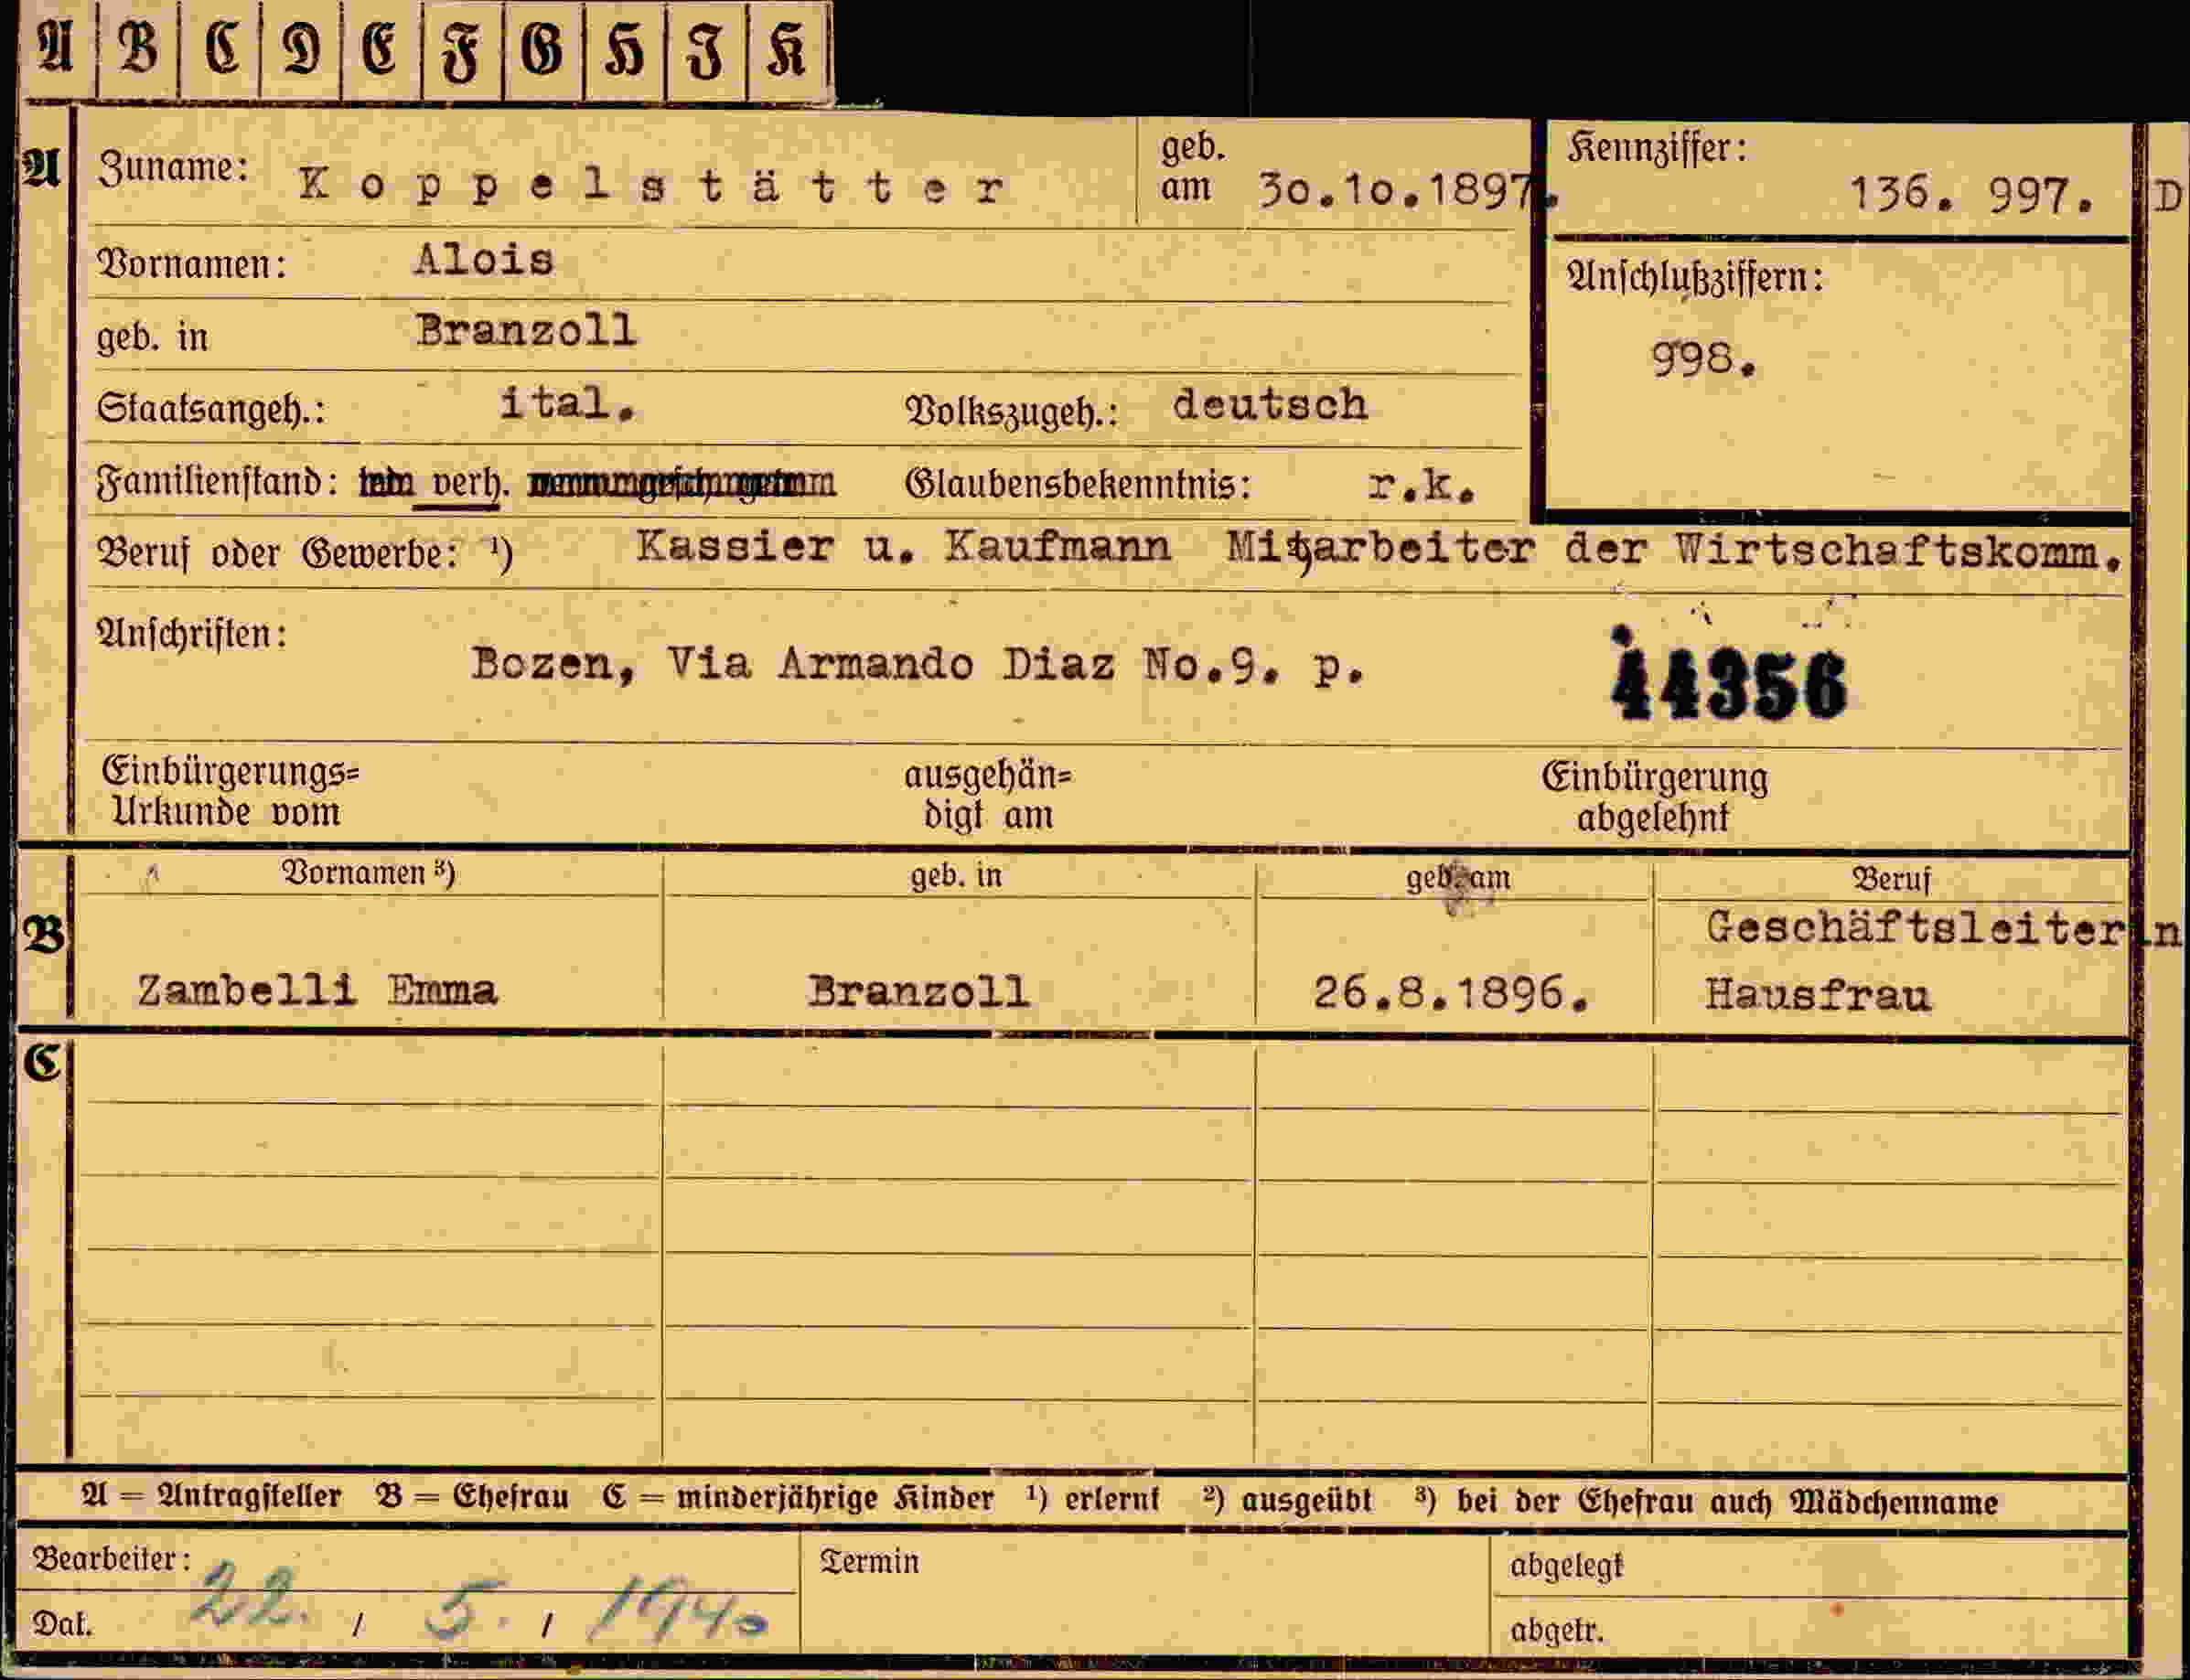 A B C D E F G H J K
A Zuname: Koppelstätter geb. am 30.10.1897. Kennziffer: 136. 997. D
Vornamen: Alois
Anschlußziffern:
geb. in Branzoll
998.
Staatsangeh.: ital. Volkszugeh.: deutsch
Familienstand: verh. Glaubensbekenntnis: r.k.
Beruf oder Gewerbe: ¹) Kassier u. Kaufmann Mitarbeiter der Wirtschaftskomm.
Anschriften: Bozen, Via Armando Diaz No.9. p. 44356
Einbürgerungs= ausgehän= Einbürgerung
Urkunde vom digt am abgelehnt
Vornamen ³) geb. in geb. am Beruf
B Geschäftsleiterin
Zambelli Emma Branzoll 26.8.1896. Hausfrau
C
A = Antragsteller B = Ehefrau C = minderjährige Kinder ¹) erlernt ²) ausgeübt ³) bei der Ehefrau auch Mädchenname
Bearbeiter: Termin abgelegt
Dat. 22. / 5. / 1940 abgetr.